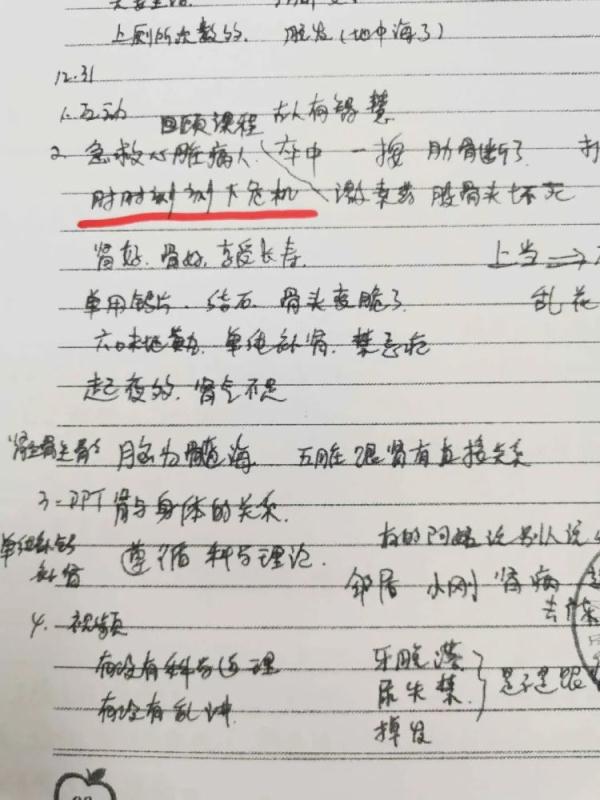 上厕所次数多. 脱发(地中海了)
12.31
1.互动 回顾课程 古人有智慧
2. 急救心脏病人. 卒中 一按 肋骨断了
时时刻刻下危机 激素药 股骨头坏死
肾好. 骨好. 享受长寿. 上当⇒
单用钙片. 结石. 骨头变脆了. 乱花
六味地黄丸. 单纯补肾. 禁忌
起夜多. 肾气不足
肾主骨生骨 脑为髓海 五脏跟肾有直接关系
3. PPT 肾与身体的关系.
单纯补钙 补肾 遵循科学理论. 有的阿姨说别人说
邻居 小刚 肾病
4. 视频 去
有没有科学道理 牙
有没有乱 尿失禁. 是不是跟
掉发